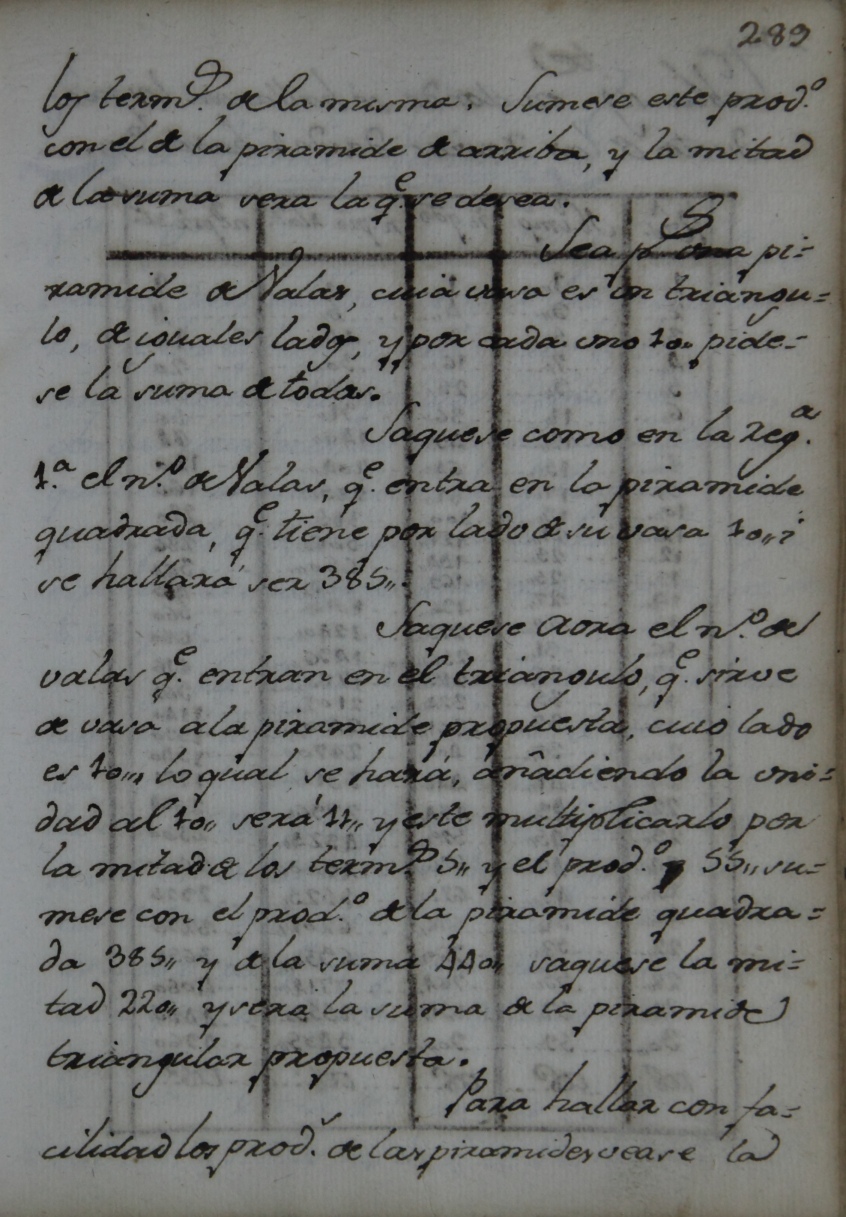 289
los term.ˢ de la misma. Sumese este prod.º
con el de la piramide de arriba, y la mitad
de la suma sera la q.ᵉ se desea.
Sea p.ˢ una pi=
ramide de Valas, cuia vasa es un triangu=
lo, de iguales lados, y por cada uno 10,, pide=
se la suma de todas.
Saquese como en la Reg.ᵃ
1.ᵃ el n.º de Valas, q.ᵉ entra en la piramide
quadrada, q.ᵉ tiene por lado de su vasa 10,, i
se hallará ser 385,,.
Saquese aora el n.º de
valas q.ᵉ entran en el triangulo, q.ᵉ sirve
de vasa a la piramide propuesta, cuio lado
es 10,,, lo qual se hará, añadiendo la uni=
dad al 10,, será 11,, y este multiplicarlo por
la mitad de los term.ˢ 5,, y el prod.º 55,, su=
mese con el prod.º de la piramide quadra=
da 385,, y de la suma 440,, saquese la mi=
tad 220,, y sera la suma de la piramide
triangular propuesta.
Para hallar con fa=
cilidad los prod.ˢ de las piramides vease la